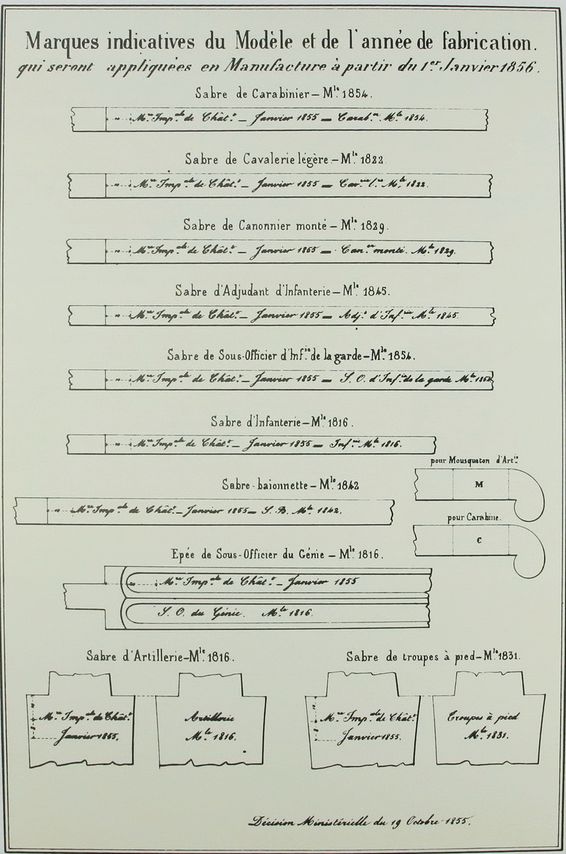 Marques indicatives du Modèle et de l'année de fabrication.
qui seront appliquées en Manufacture à partir du 1er Janvier 1856.
Sabre de Carabinier — Mle 1854.
Mre Impale de Chât.t — Janvier 1855 — Carabr. Mle 1854.
Sabre de Cavalerie légère — Mle 1822.
Mre Impale de Chât.t — Janvier 1855 — Cavrie lre Mle 1822.
Sabre de Canonnier monté — Mle 1829.
Mre Impale de Chât.t — Janvier 1855 — Canner monté. Mle 1829.
Sabre d'Adjudant d'Infanterie — Mle 1845.
Mre Impale de Chât.t — Janvier 1855 — Adjt d'Infrie Mle 1845.
Sabre de Sous-Officier d'Infrie de la garde — Mle 1854.
Mre Impale de Chât.t — Janvier 1855 — S. O. d'Infrie de la garde Mle 1854
Sabre d'Infanterie — Mle 1816.
Mre Impale de Chât.t — Janvier 1855 — Infrie Mle 1816.
pour Mousqueton d'Artie
M
Sabre-baionnette — Mle 1842
Mre Impale de Chât.t — Janvier 1855 — S. B. Mle 1842.
pour Carabine.
C
Epée de Sous-Officier du Génie — Mle 1816.
Mre Impale de Chât.t — Janvier 1855
S. O. du Génie. Mle 1816.
Sabre d'Artillerie — Mle 1816.
Sabre de troupes à pied — Mle 1831.
Mre Impale de Chât.t
Janvier 1855.
Artillerie
Mle 1816.
Mre Impale de Chât.t
Janvier 1855.
Troupes à pied
Mle 1831.
Décision Ministérielle du 19 Octobre 1855.